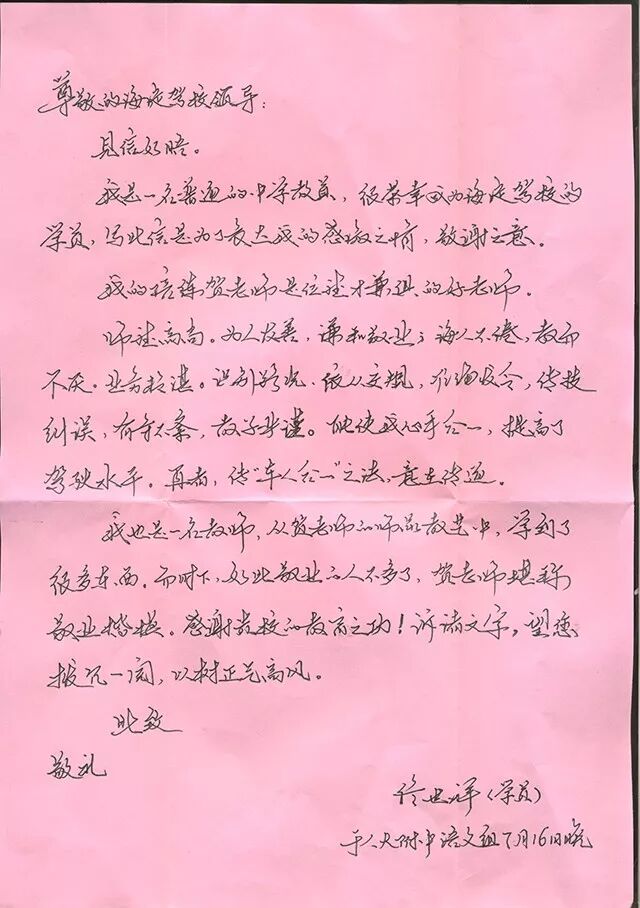 尊敬的海淀驾校领导：
见信好晤。
我是一名普通的中学教员，很荣幸成为海淀驾校的
学员，写此信是为了表达我的感激之情，敬谢之意。
我的陪练贺老师是位德才兼具的好老师。
师德高尚。为人友善，谦和敬业；诲人不倦，教而
不厌。业务精湛。识别路况，依从交规，准确发令，传技
纠误，有条不紊，教学严谨。他使我心手合一，提高了
驾驶水平。再者，传“车人合一”之法，意在传道。
我也是一名教师，从贺老师的师范教艺中，学到了
很多东西。而时下，如此敬业的人不多了，贺老师堪称
敬业楷模。感谢贵校的教育之功！诉诸文字，望您
拨冗一阅，以树正气高风。
此致
敬礼
佟世祥（学员）
于人大附中语文组7月16日晚